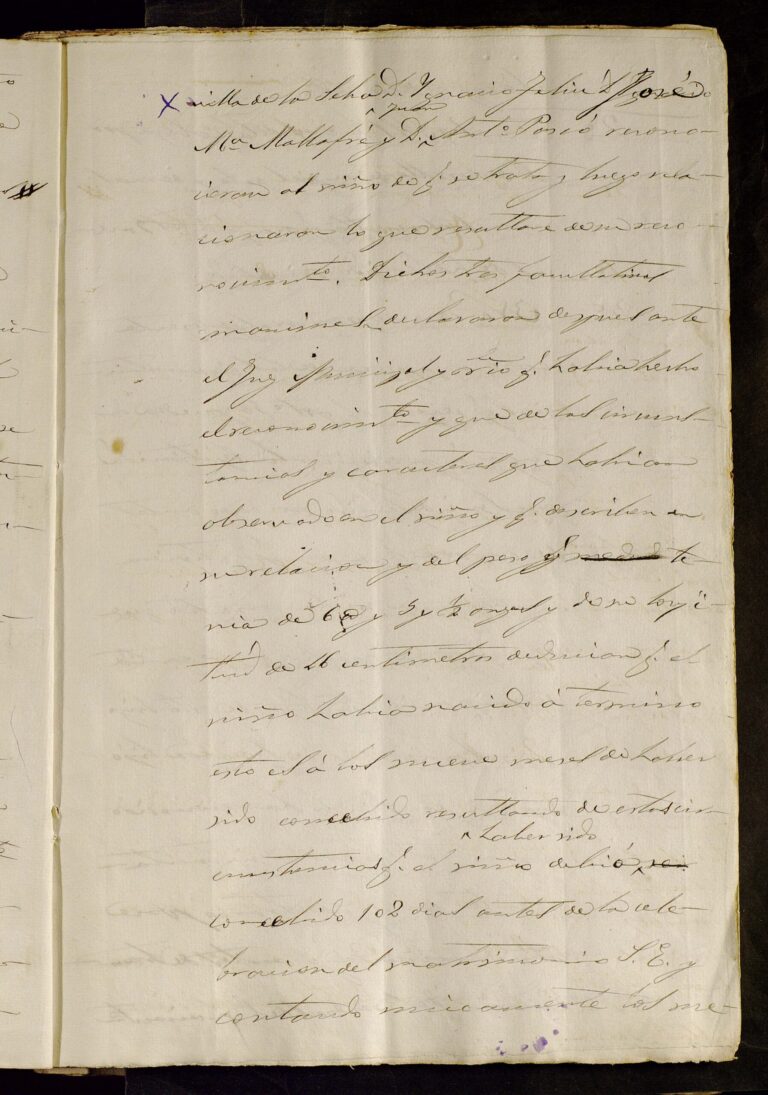 villa de la Selva D. Ygnacio Feliu D. José
Ma Mallafré y D. Juan Anto Porió recono-
cieran al niño de q. se trata y luego rela-
cionaran lo que resultare de su reco-
nocimto. Dichos tres facultativos
declararon después ante
el Juez Municipal y q. habia hecho
el reconocimto y que de las circuns-
tancias y caracteres que habian
observado en el niño y q. describen en
su relacion y del peso q. te-
nia de 6 y 5 y ½ onzas y de su longi-
tud de 26 centimetros deducian q. el
niño habia nacido á termino
esto es á los nueve meses de haber
sido concebido resultando de estas cir-
cunstancias q. el niño debió haber sido
concebido 102 dias antes de la cele-
bracion del matrimonio S. E. y
contando unicamente los me-